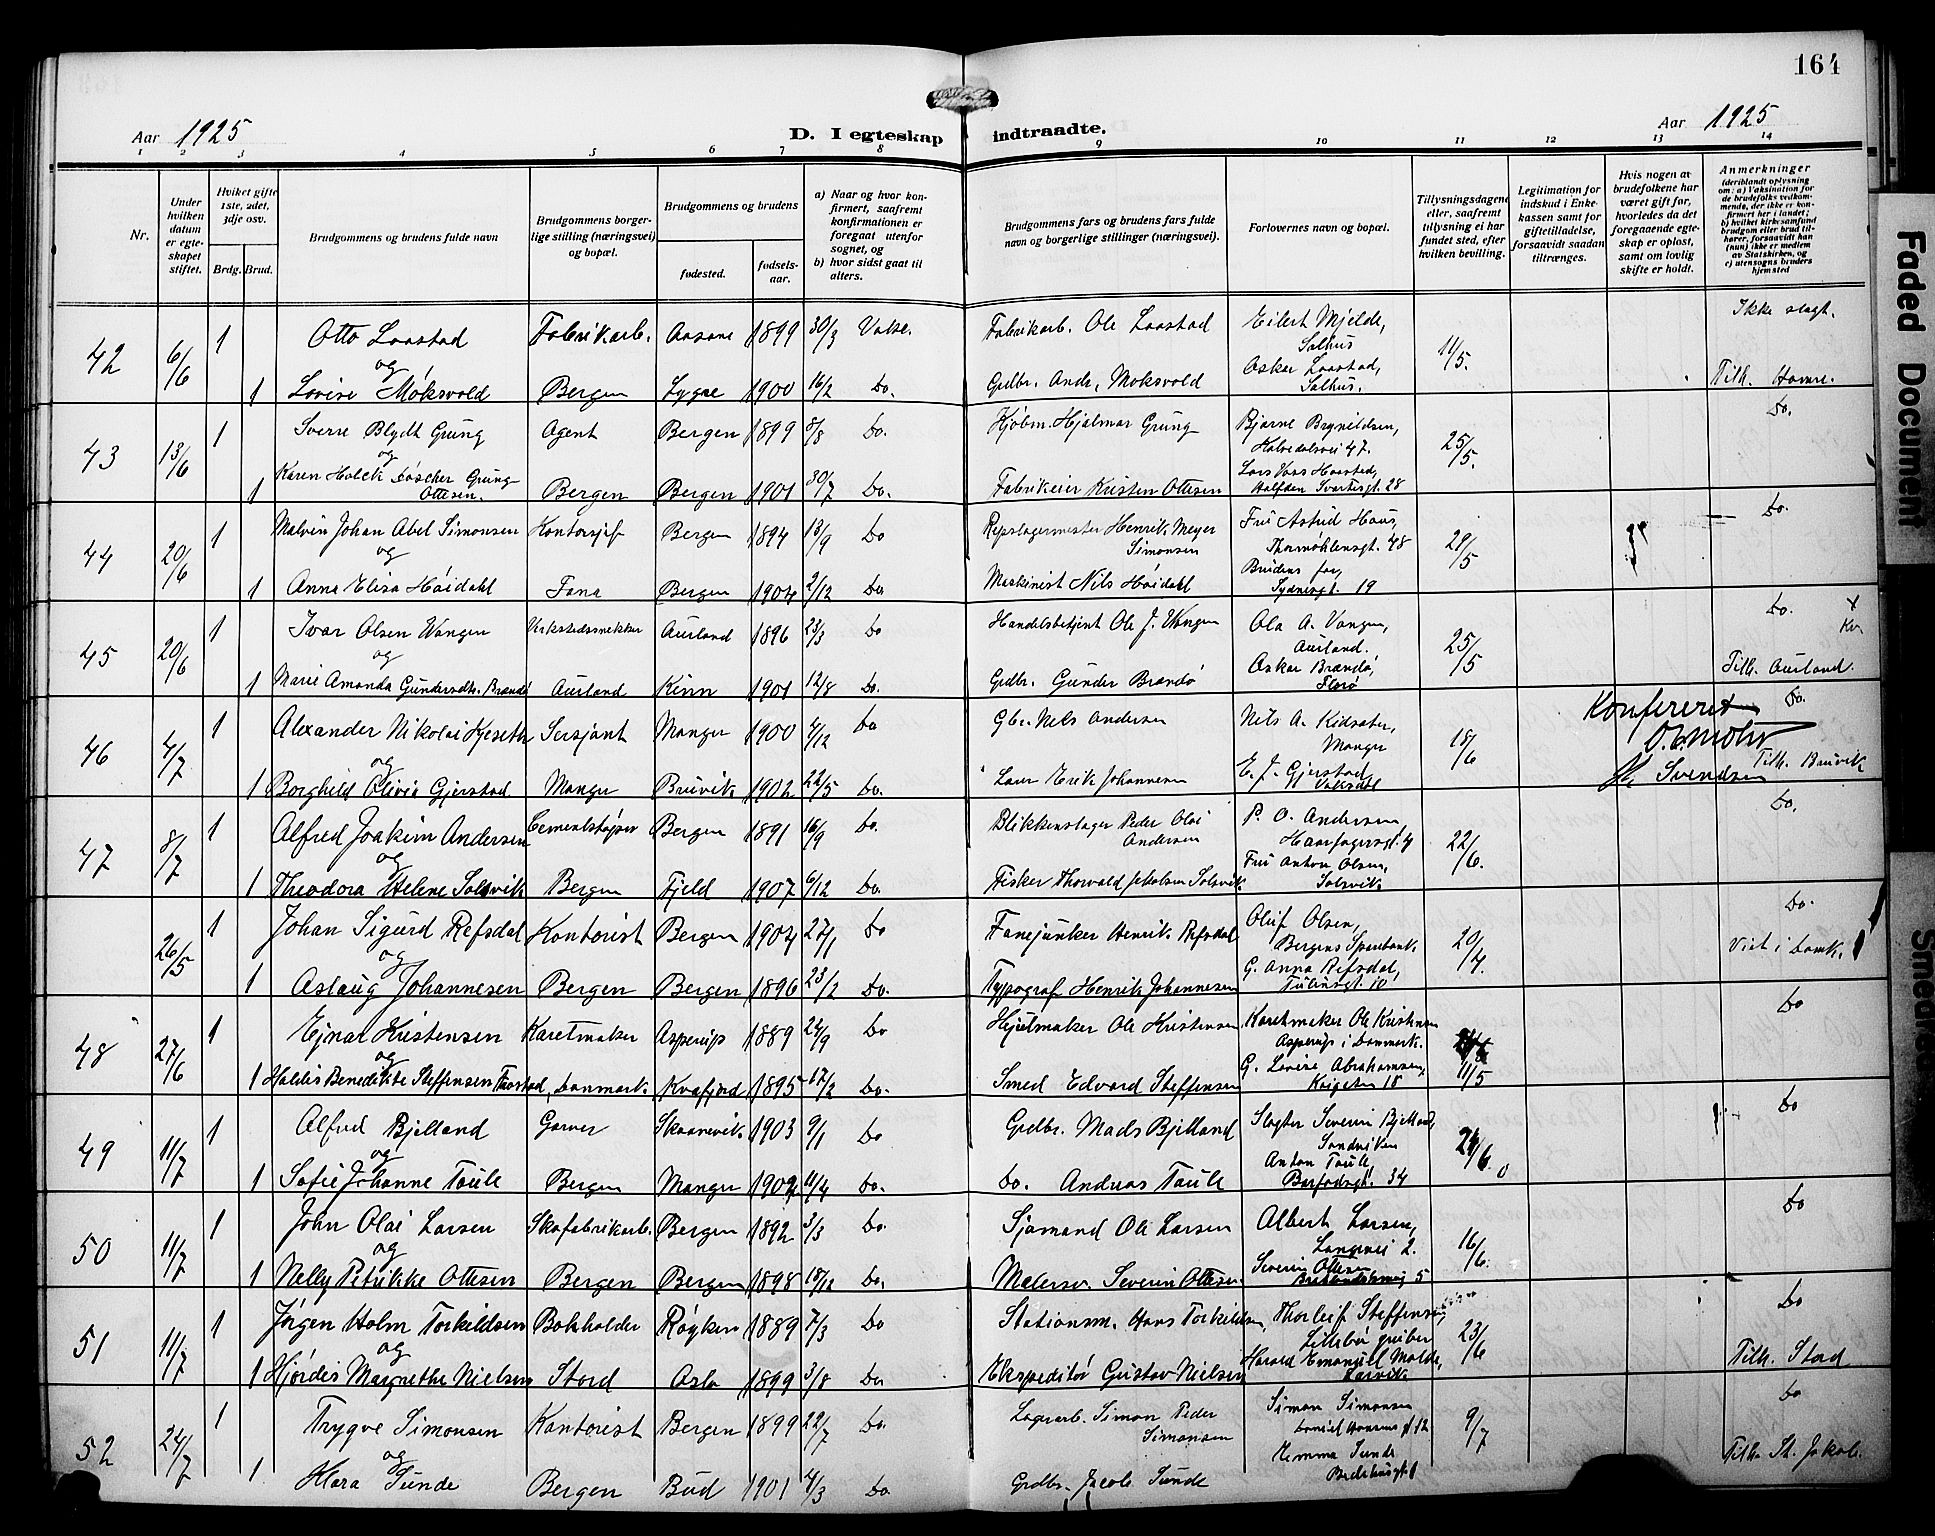 164
Aar 1925
D. I egteskap indtraadte.
Aar 1925
1 2 3 4 5 6 7 8 9 10 11 12 13 14
Nr.
Under hvilken datum er egteskapet stiftet.
Hvilket gifte 1ste, 2det, 3dje osv.
Brdg. Brud.
Brudgommens og brudens fulde navn
Brudgommens borgerlige stilling (næringsvei) og bopæl.
Brudgommens og brudens
fødested. fødselsaar.
a) Naar og hvor konfirmert, saafremt konfirmationen er foregaat utenfor sognet, og
b) hvor sidst gaat til alters.
Brudgommens fars og brudens fars fulde navn og borgerlige stillinger (næringsvei).
Forlovernes navn og bopæl.
Tillysningsdagene eller, saafremt tillysning ei har fundet sted, efter hvilken bevilling.
Legitimation for indskud i Enkekassen samt for giftetilladelse, forsaavidt saadan tiltrænges.
Hvis nogen av brudefolkene har været gift før, hvorledes da det foregaaende egteskap er opløst, samt om lovlig skifte er holdt.
Anmerkninger (deriblandt oplysning om: a) Vaksination for de brudefolks vedkommende, der ikke er konfirmert her i landet; b) hvilket kirkesamfund brudgom eller brud tilhører, forsaavidt han (hun) ikke er medlem av Statskirken, og c) utensogns bruders hjemsted
42 6/6 1 Otto Laastad Fabrikarb. Aasane 1899 30/3 Vakse. Fabrikarb. Ole Laastad Eilert Mjelde, Salhus 11/5. Ikke slagt.
og Oskar Laastad, Salhus.
1 Lovise Moksvold Bergen Lygre 1900 16/2 Do. Grdbr. Andr. Moksvold Tilh. Hamre.
43 13/6 1 Sverre Blydt Grung Agent Bergen 1899 8/8 Do. Kjøbm. Hjalmar Grung Bjarne Brynildsen, 47. 25/5. Do.
og
1 Karen Holck Grung Ottesen. Bergen Bergen 1901 30/7 Do. Fabrikeier Kristen Ottesen Halfdan Svartesgt. 28
44 20/6 1 Malvin Johan Abel Simonsen Kontorsjef Bergen 1894 13/9 Do Repslagermester Henrik Meyer Simonsen Fru Astrid Haus, Thormøhlensgt. 48 29/5 Do.
og Brudens far, Sydnesgt. 19
1 Anna Elisa Høidahl Fana Bergen 1904 2/12 Do Maskinist Nils Høidahl
45 20/6 1 Ivar Olsen Wangen Verkstedssnekker Aurland 1896 23/3 Do Handelsbetjent Ole J. Wangen Ola A. Vangen, Aurland. 25/5 Do. x Kv.
og Oskar Brandø, Florø
1 Marie Amanda Gundersdtr. Brandø Aurland Kinn 1901 12/8 Do. Grdbr. Gunder Brandø Tilh. Aurland.
46 4/7 1 Alexander Nikolai Hjeseth Sersjant Manger 1900 4/12 Do Gbr. Nels Andersen Nils A. Kidsater, Manger 18/6 Do.
Konfereret
og E. J. Gjerstad, Vaksdal
1 Borghild Olivia Gjerstad. Manger Bruvik 1902 22/5 Do. Erik Johannesen Svendsen Tilh. Bruvik
47 8/7 1 Alfred Joakim Andersen Cementstøper Bergen 1891 16/9 Do. Blikkenslager Peder Olai Andersen P. O. Andersen, Haarfagersgt. 4 22/6. Do.
og Fru Anton Olsen, Solsvik
1 Theodora Helene Solsvik Bergen Fjeld 1907 6/12 Do. Fisker Thorvald Jakobsen Solsvik
26/5 1 Johan Sigurd Refsdal Kontorist Bergen 1904 27/1 Do Fanejunker Henrik Refsdal Oluf Olsen, Bergens Sparebank 20/4. Do.
og G. Anna Refsdal, Tulinsgt. 10 Viet i Domk.
1 Aslaug Johannesen Bergen Bergen 1896 23/2 Do. Typograf Henrik Johannesen
48 27/6 1 Ejnar Kristensen Karetmaker Asperup 1889 24/9 Do Hjulmaker Ole Kristensen Karetmaker Ole Kristensen Asperup i Danmark. 11/5 Do
og G. Lovise Abrahamsen, 18
1 Haldis Benedikte Steffensen Danmark. Kvæfjord 1895 17/2 Do. Smed Edvard Steffensen
49 11/7 1 Alfred Bjelland Garver Skaanevik. 1903 9/1 Do Grdbr. Mads Bjelland Slagter Severin Bjelland, Sandviken 24/6. Do
og Anton Toule
1 Sofie Johanne Toule Bergen Manger 1902 11/4 Do. Do. Andreas Toule 34
50 11/7 1 John Olai Larsen Skofabrikarb. Bergen 1892 3/3 Do. Sjømand Ole Larsen Albert Larsen, Langevei 2. 16/6. Do
og Severin Ottesen 5
1 Nelly Petrikke Ottesen Bergen Bergen 1898 18/12 Do. Malersv. Severin Ottesen
51 11/7 1 Jørgen Holm Torkildsen Bokholder Røyken 1889 7/3 Do Stationsm. Hans Torkildsen, Thorleif Steffensen, 23/6 Do
og Harald Emanuell Larvik
1 Hjørdis Margrethe Nielsen Stord Oslo 1899 3/8 Do Ekspeditør Gustav Nielsen Tilh. Stord
52 24/7 1 Trygve Simonsen Kontorist Bergen 1899 22/7 Do. Lagerarb. Simon Peder Simonsen Simon Simonsen 12 9/7 Do
og Hemma Sunde
1 Klara Sunde Bergen Bud 1901 4/3 Do Grdbr. Jacob Sunde Tilh. St. Jakob.
Faded Document
Smeared